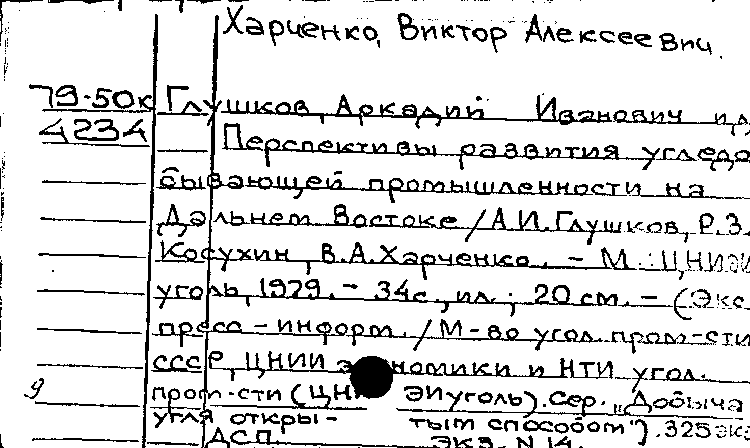 Харченко, Виктор Алексеевич.
79-50к Глушков, Аркадий Иванович и др
4234 Перспективы развития угледо
бывающей промышленности на
Дальнем Востоке / А.И. Глушков, Р.З.
Косухин, В.А. Харченко. - М.: ЦНИЭИ
уголь, 1979. - 34с., ил.; 20 см. - (Экс
пресс-информ. / М-во угол. пром-сти
СССР, ЦНИИ экономики и НТИ угол.
9 пром-сти (ЦНИЭИуголь). Сер. "Добыча
угля откры- тым способом"). 325 экз
ДСП. Экз. N 14.